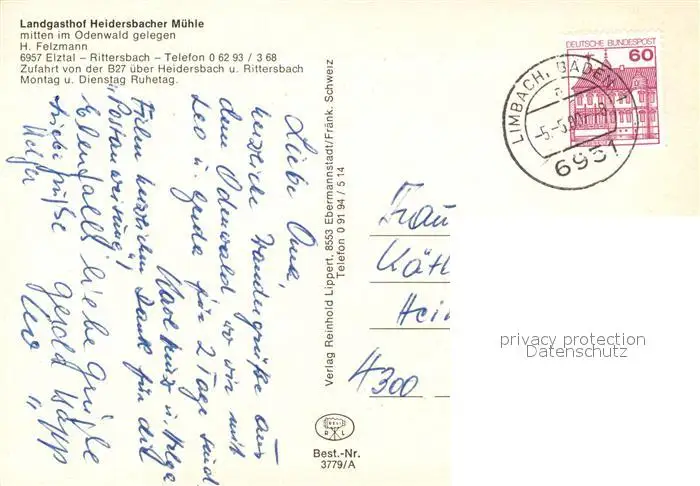 Landgasthof Heidersbacher Mühle
mitten im Odenwald gelegen
H. Felzmann
6957 Elztal – Rittersbach – Telefon 0 62 93 / 3 68
Zufahrt von der B27 über Heidersbach u. Rittersbach
Montag u. Dienstag Ruhetag.
Liebe Oma,
herzliche Wandergrüße aus
dem Odenwald wo wir mit
Leo u. Gerda für 2 Tage sind
Karlheinz u. Helga
Filen herzlichen Dank für die
"Postanweisung"
Ebenfalls liebe Grüße
Gerold
Liebe Grüße
Uwe
Holger
Verlag Reinhold Lippert, 8553 Ebermannstadt/Fränk. Schweiz
Telefon 0 91 94 / 5 14
RELI
R L
Best.-Nr.
3779/A
DEUTSCHE BUNDESPOST
60
LIMBACH, BADEN
6951
Frau
Käth
Hein
4300
privacy protection
Datenschutz